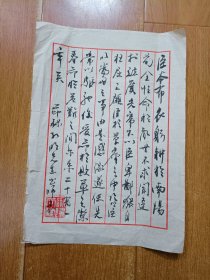 臣本布衣躬耕於南陽
苟全性命於亂世不求聞達
於諸侯先帝不以臣卑鄙猥自
枉屈三顧臣於草廬之中諮臣
以當世之事由是感激遂許先
帝以驅馳後受任於敗軍之際
奉命於危難之間爾來二十有
一年矣
節録孔明出師表